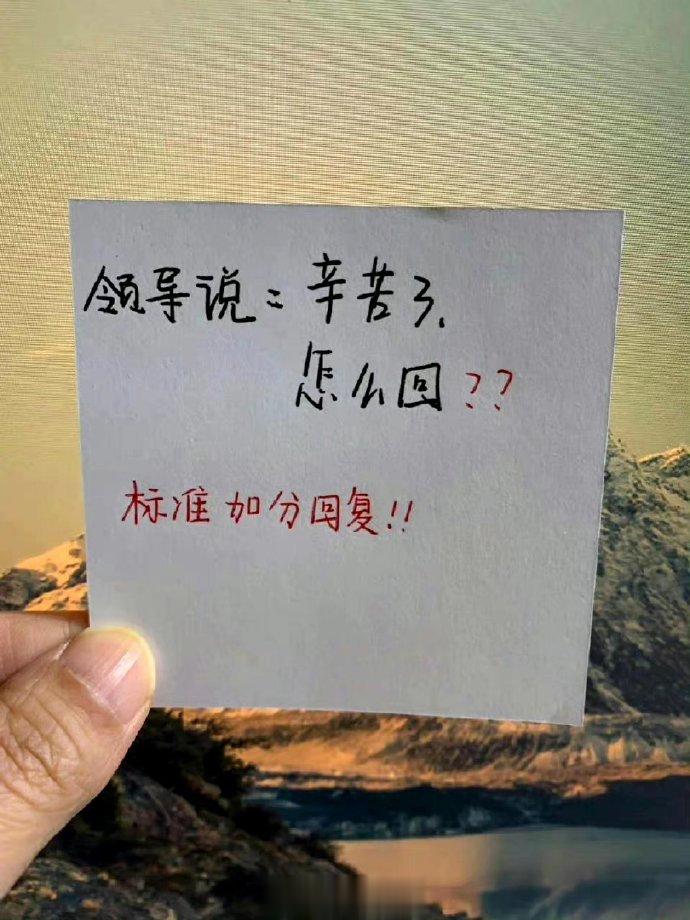 领导说：辛苦了，
怎么回？？
标准加分回复！！